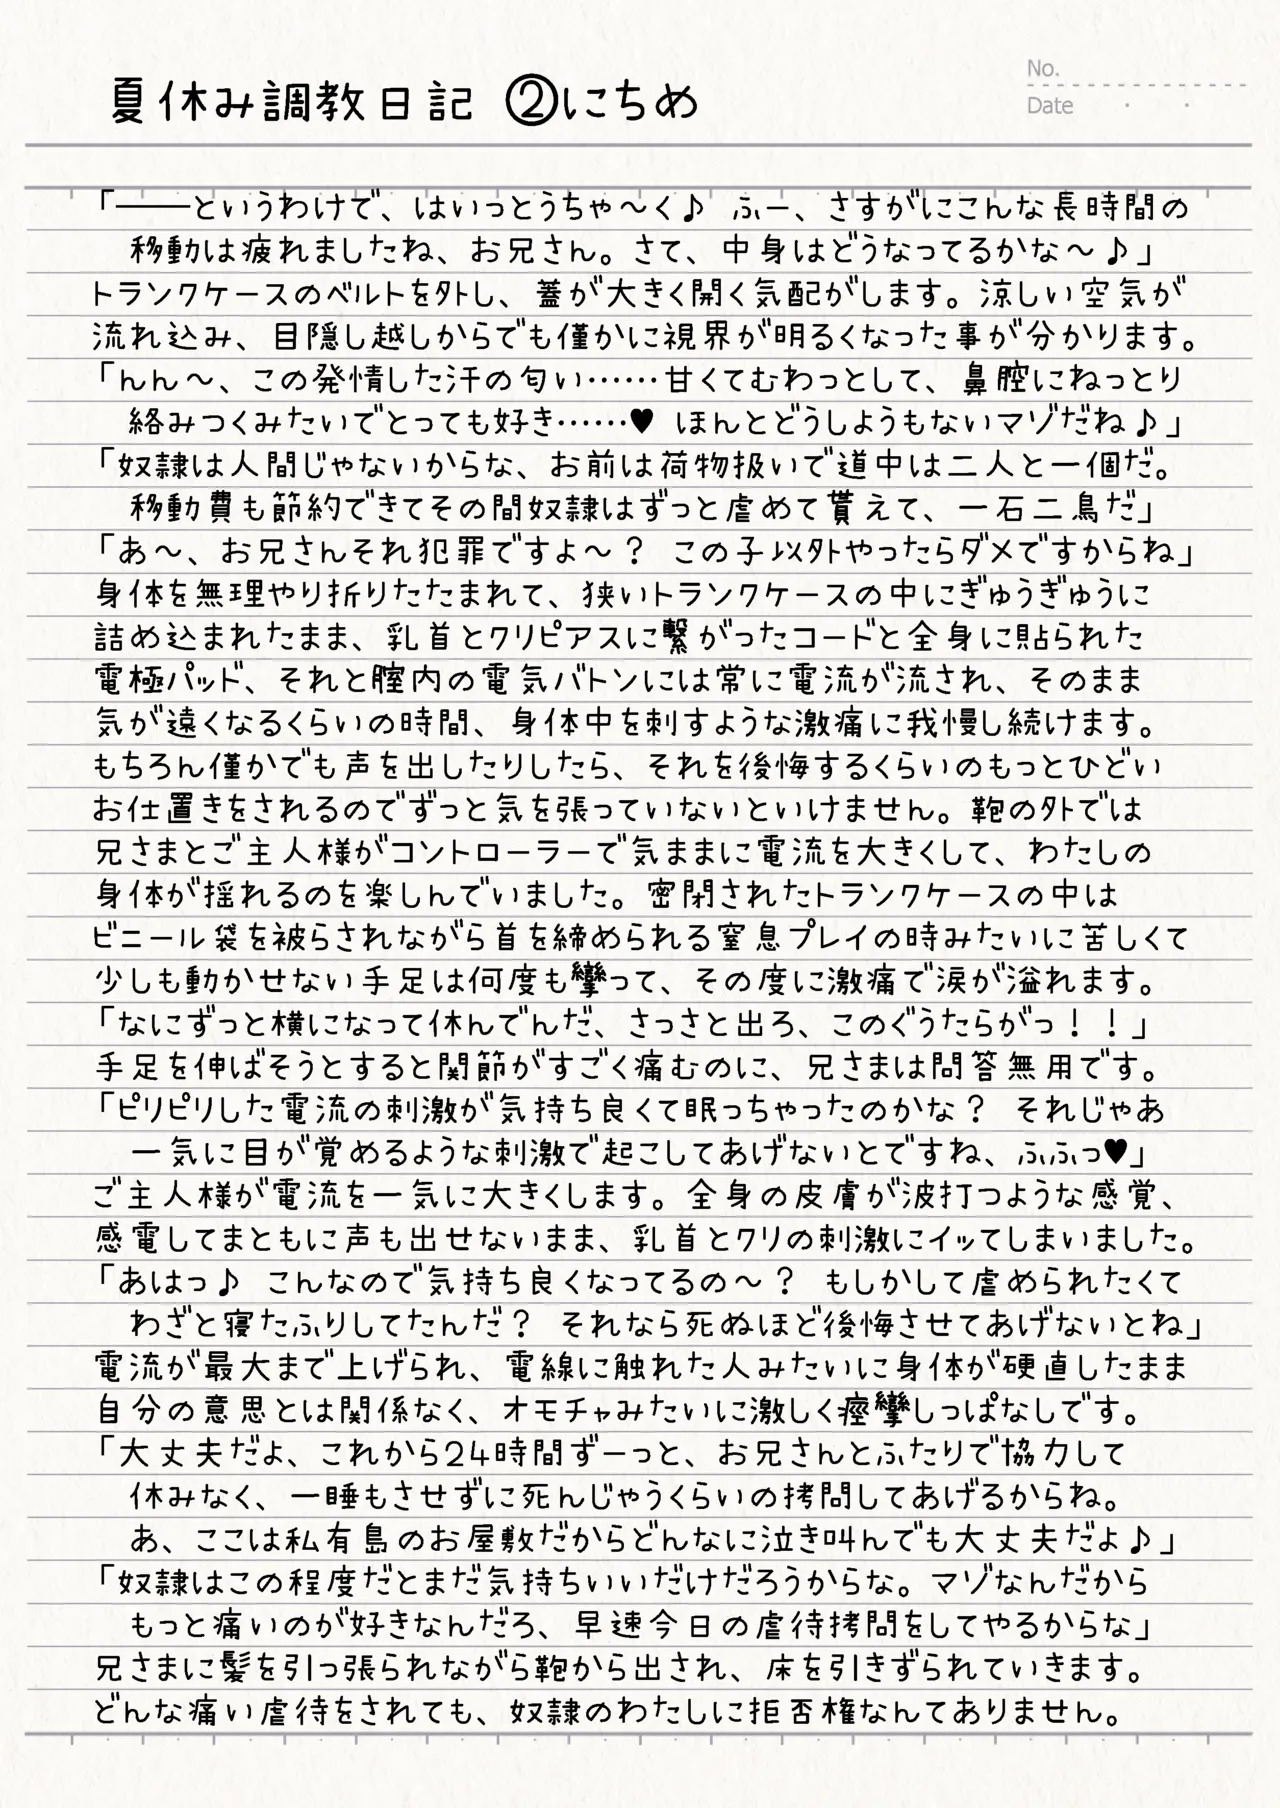 夏休み調教日記 ②にちめ
No.
Date
「――というわけで、はいっとうちゃ～く♪ ふー、さすがにこんな長時間の
移動は疲れましたね、お兄さん。さて、中身はどうなってるかな～♪」
トランクケースのベルトを外し、蓋が大きく開く気配がします。涼しい空気が
流れ込み、目隠し越しからでも僅かに視界が明るくなった事が分かります。
「んん～、この発情した汗の匂い……甘くてむわっとして、鼻腔にねっとり
絡みつくみたいでとっても好き……♥ ほんとどうしようもないマゾだね♪」
「奴隷は人間じゃないからな、お前は荷物扱いで道中は二人と一個だ。
移動費も節約できてその間奴隷はずっと虐めて貰えて、一石二鳥だ」
「あ～、お兄さんそれ犯罪ですよ～？ この子以外やったらダメですからね」
身体を無理やり折りたたまれて、狭いトランクケースの中にぎゅうぎゅうに
詰め込まれたまま、乳首とクリピアスに繋がったコードと全身に貼られた
電極パッド、それと膣内の電気バトンには常に電流が流され、そのまま
気が遠くなるくらいの時間、身体中を刺すような激痛に我慢し続けます。
もちろん僅かでも声を出したりしたら、それを後悔するくらいのもっとひどい
お仕置きをされるのでずっと気を張っていないといけません。鞄の外では
兄さまとご主人様がコントローラーで気ままに電流を大きくして、わたしの
身体が揺れるのを楽しんでいました。密閉されたトランクケースの中は
ビニール袋を被らされながら首を締められる窒息プレイの時みたいに苦しくて
少しも動かせない手足は何度も攣って、その度に激痛で涙が溢れます。
「なにずっと横になって休んでんだ、さっさと出ろ、このぐうたらがっ！！」
手足を伸ばそうとすると関節がすごく痛むのに、兄さまは問答無用です。
「ピリピリした電流の刺激が気持ち良くて眠っちゃったのかな？ それじゃあ
一気に目が覚めるような刺激で起こしてあげないとですね、ふふっ♥」
ご主人様が電流を一気に大きくします。全身の皮膚が波打つような感覚、
感電してまともに声も出せないまま、乳首とクリの刺激にイッてしまいました。
「あはっ♪ こんなので気持ち良くなってるの～？ もしかして虐められたくて
わざと寝たふりしてたんだ？ それなら死ぬほど後悔させてあげないとね」
電流が最大まで上げられ、電線に触れた人みたいに身体が硬直したまま
自分の意思とは関係なく、オモチャみたいに激しく痙攣しっぱなしです。
「大丈夫だよ、これから24時間ずーっと、お兄さんとふたりで協力して
休みなく、一睡もさせずに死んじゃうくらいの拷問してあげるからね。
あ、ここは私有島のお屋敷だからどんなに泣き叫んでも大丈夫だよ♪」
「奴隷はこの程度だとまだ気持ちいいだけだろうからな。マゾなんだから
もっと痛いのが好きなんだろ、早速今日の虐待拷問をしてやるからな」
兄さまに髪を引っ張られながら鞄から出され、床を引きずられていきます。
どんな痛い虐待をされても、奴隷のわたしに拒否権なんてありません。